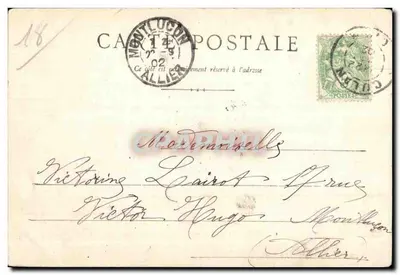 18
CARTE POSTALE
Ce côté est exclusivement réservé à l'adresse
MONTLUÇON
02
ALLIER
Mademoiselle
Victorine Lairot 17 rue
Victor Hugo Montluçon
(Allier